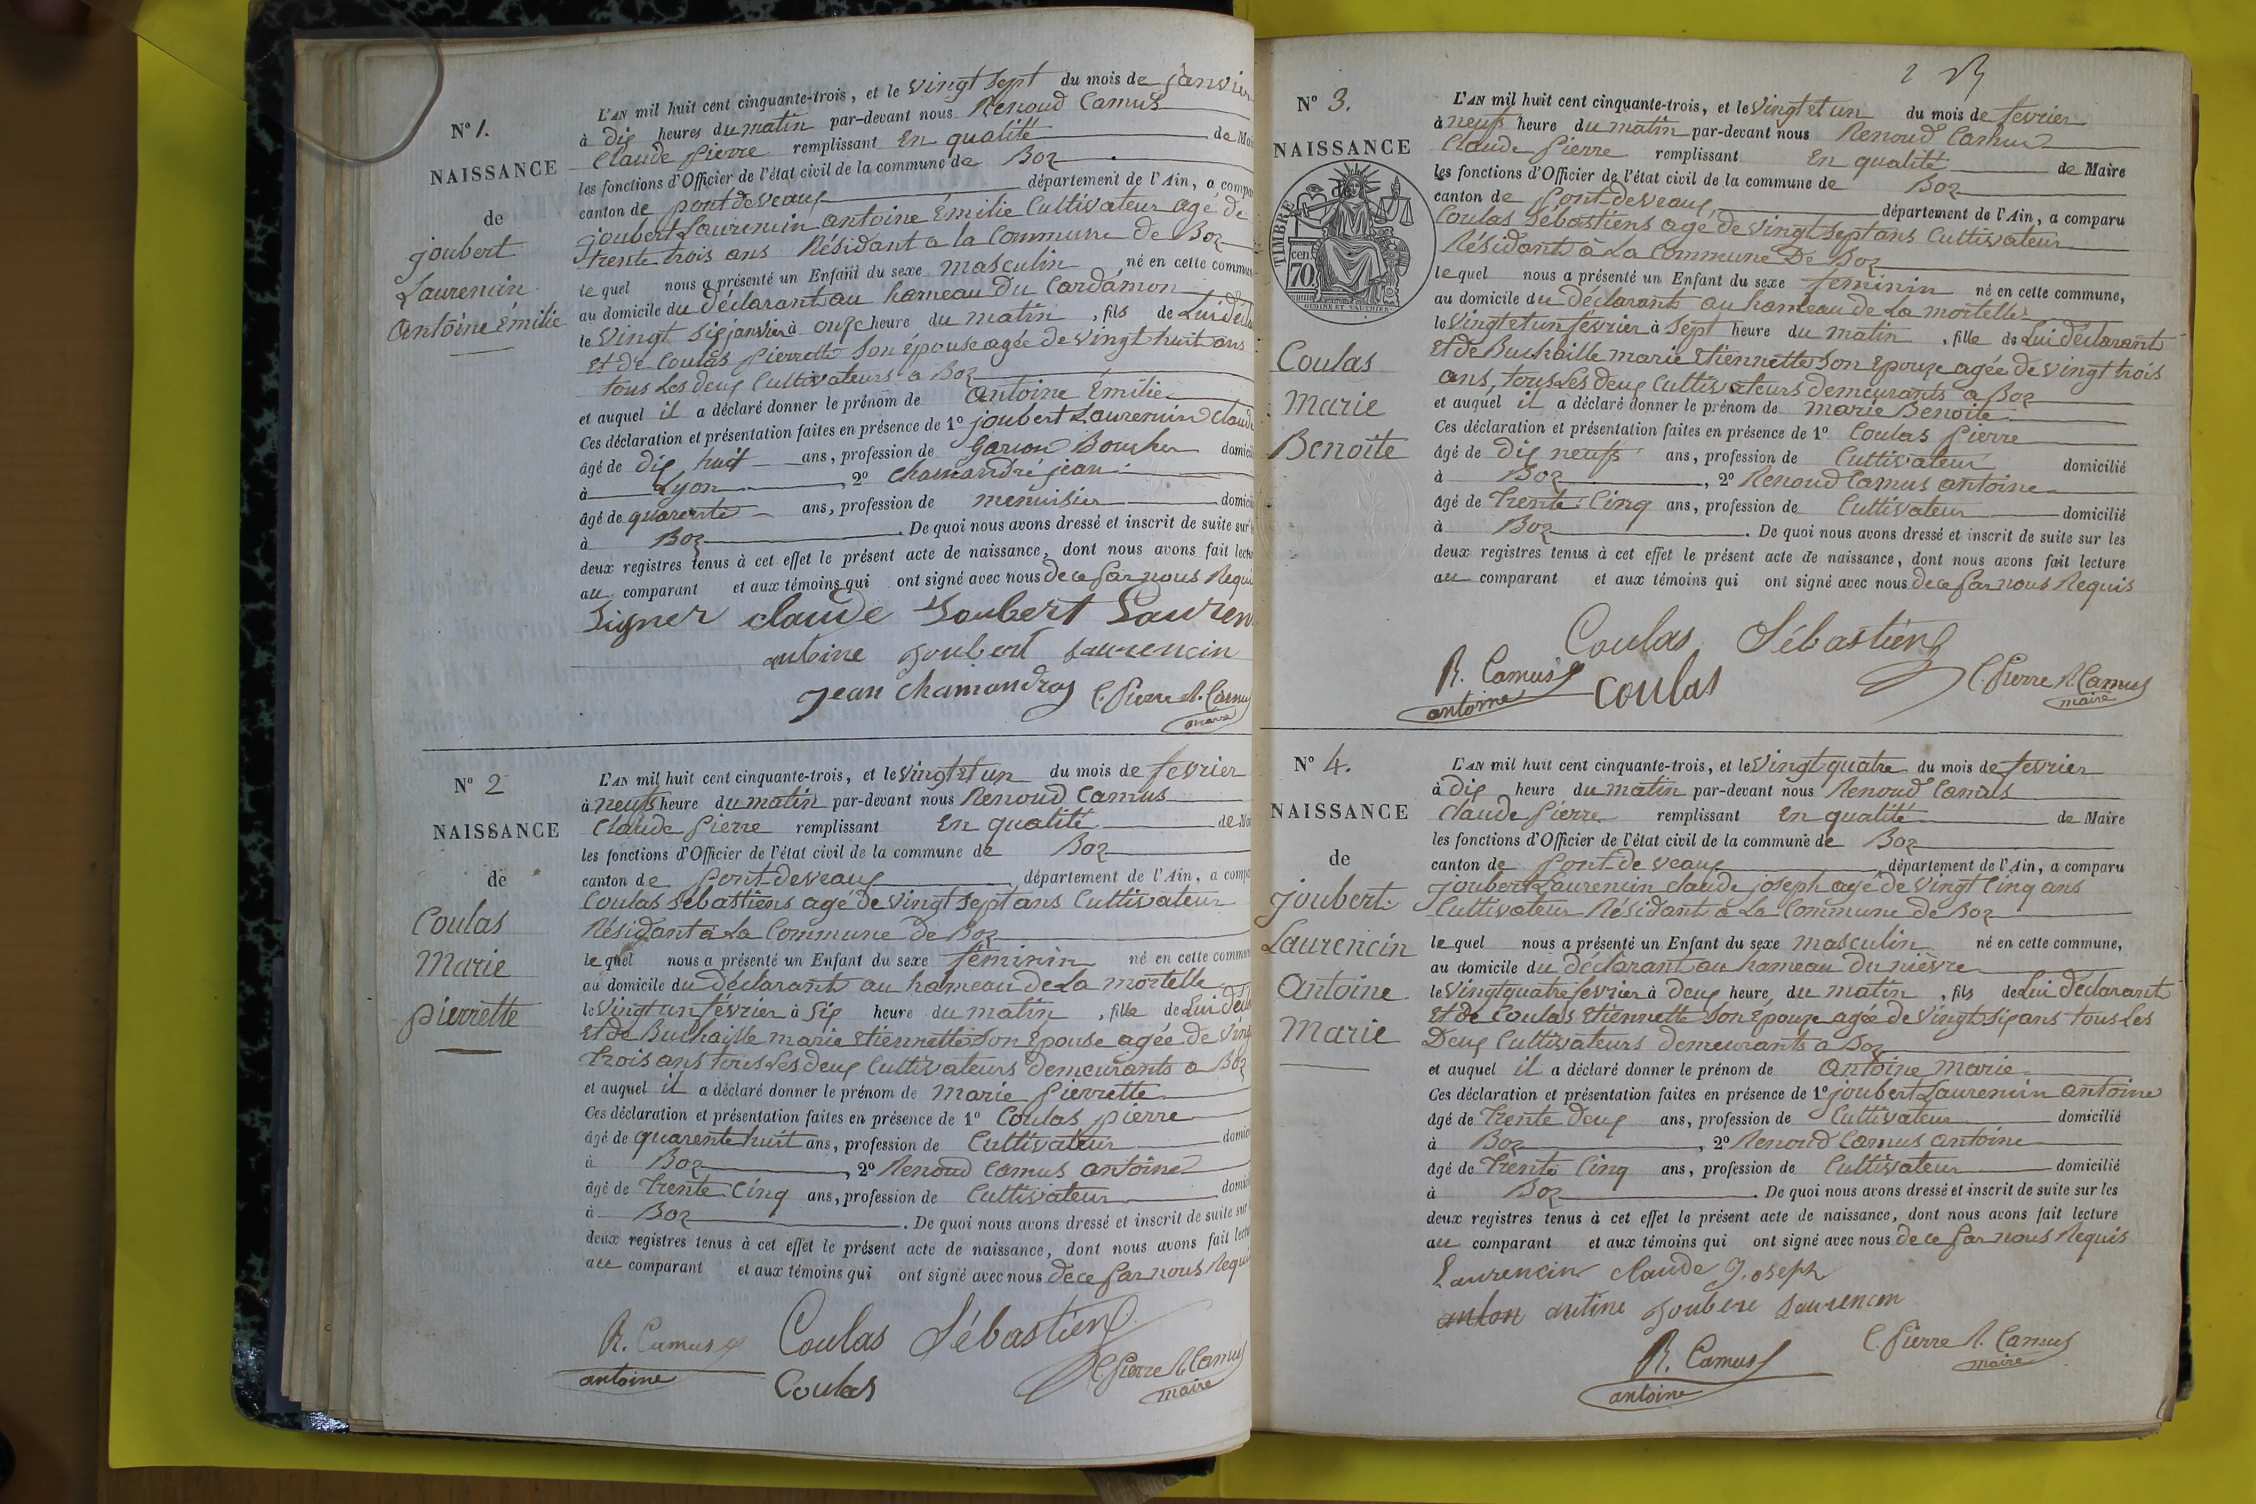 N° 1.
NAISSANCE
de
joubert
Laurencin
Antoine Émilie
L'AN mil huit cent cinquante-trois, et le vingt sept du mois de janvier
à dix heures du matin par-devant nous Renoud Camus
Claude pierre remplissant En qualité de Mai
les fonctions d'Officier de l'état civil de la commune de Boz
canton de pont de veaux département de l'Ain, a compa
joubert Laurencin antoine Émilie Cultivateur agé de
trente trois ans Résidant a la Commune de Boz
le quel nous a présenté un Enfant du sexe masculin né en cette commun
au domicile du déclarant au hameau du Cardamon
le Vingt six janvier à onze heure du matin, fils de Lui décla
Et de Coulas pierrette Son épouse agée de vingt huit ans
tous Les deux Cultivateurs a Boz
et auquel il a déclaré donner le prénom de antoine Émilie
Ces déclaration et présentation faites en présence de 1° joubert Laurencin Claude
âgé de dix huit ans, profession de Garson Boucher domici
à Lyon, 2° chamandré jean
âgé de quarente ans, profession de menuisier domici
à Boz. De quoi nous avons dressé et inscrit de suite sur
deux registres tenus à cet effet le présent acte de naissance, dont nous avons fait lectu
au comparant et aux témoins qui ont signé avec nous de ce par nous Requi
Signer claude Joubert Lauren
antoine joubert laurencin
jean chamandray C. Pierre R. Camus
maire
N° 2
NAISSANCE
de
Coulas
Marie
pierrette
L'AN mil huit cent cinquante-trois, et le vingt et un du mois de fevrier
à neufs heure du matin par-devant nous Renoud Camus
Claude pierre remplissant En qualité de Ma
les fonctions d'Officier de l'état civil de la commune de Boz
canton de pont de veaux département de l'Ain, a compa
Coulas sébastiens agé de vingt sept ans Cultivateur
Résidant à La Commune de Boz
le quel nous a présenté un Enfant du sexe féminin né en cette commun
au domicile du déclarant au hameau de La mortelle
le Vingt un février à six heure du matin, fille de Lui décla
Et de Buchaille marie Etiennette Son Epouse agée de Ving
trois ans tous Les deux Cultivateurs demeurants a Boz
et auquel il a déclaré donner le prénom de marie pierrette
Ces déclaration et présentation faites en présence de 1° Coulas pierre
âgé de quarente huit ans, profession de Cultivateur domici
à Boz, 2° Renoud Camus antoine
âgé de trente Cinq ans, profession de Cultivateur domici
à Boz. De quoi nous avons dressé et inscrit de suite sur
deux registres tenus à cet effet le présent acte de naissance, dont nous avons fait lectu
au comparant et aux témoins qui ont signé avec nous de ce par nous Requi
R. Camus Coulas Sébastien
antoine Coulas C. Pierre R. Camus
maire
N° 3.
NAISSANCE
de
TIMBRE
70 cen.
Coulas
Marie
Benoite
L'AN mil huit cent cinquante-trois, et le vingt et un du mois de fevrier
à neufs heure du matin par-devant nous Renoud Camus
Claude pierre remplissant En qualité de Maire
les fonctions d'Officier de l'état civil de la commune de Boz
canton de pont de veaux département de l'Ain, a comparu
Coulas sébastiens agé de vingt sept ans Cultivateur
Résidant à La Commune De Boz
le quel nous a présenté un Enfant du sexe féminin né en cette commune,
au domicile du déclarant au hameau de La mortelle
le Vingt et un février à sept heure du matin, fille de Lui déclarant
Et de Buchaille marie Etiennette Son Epouze agée de vingt trois
ans, tous Les deux Cultivateurs demeurants a Boz
et auquel il a déclaré donner le prénom de marie Benoite
Ces déclaration et présentation faites en présence de 1° Coulas pierre
âgé de dix neufs ans, profession de Cultivateur domicilié
à Boz, 2° Renoud Camus antoine
âgé de trente Cinq ans, profession de Cultivateur domicilié
à Boz. De quoi nous avons dressé et inscrit de suite sur les
deux registres tenus à cet effet le présent acte de naissance, dont nous avons fait lecture
au comparant et aux témoins qui ont signé avec nous de ce par nous Requis
Coulas Sébastien
R. Camus Coulas C. Pierre R. Camus
antoine maire
N° 4.
NAISSANCE
de
joubert
Laurencin
Antoine
Marie
L'AN mil huit cent cinquante-trois, et le vingt quatre du mois de fevrier
à dix heure du matin par-devant nous Renoud Camus
Claude pierre remplissant En qualité de Maire
les fonctions d'Officier de l'état civil de la commune de Boz
canton de pont de veaux département de l'Ain, a comparu
joubert Laurencin claude joseph agé de vingt Cinq ans
Cultivateur Résidant a La Commune de Boz
le quel nous a présenté un Enfant du sexe masculin né en cette commune,
au domicile du déclarant au hameau du nièvre
le Vingt quatre fevrier à deux heure, du matin, fils de Lui déclarant
Et de Coulas Etiennette Son Epouze agée de vingt six ans tous Les
Deux Cultivateurs demeurants a Boz
et auquel il a déclaré donner le prénom de antoine marie
Ces déclaration et présentation faites en présence de 1° joubert Laurencin antoine
âgé de trente deux ans, profession de Cultivateur domicilié
à Boz, 2° Renoud Camus antoine
âgé de trente Cinq ans, profession de Cultivateur domicilié
à Boz. De quoi nous avons dressé et inscrit de suite sur les
deux registres tenus à cet effet le présent acte de naissance, dont nous avons fait lecture
au comparant et aux témoins qui ont signé avec nous de ce par nous Requis
Laurencin claude Joseph
anton antine joubere laurencin
R. Camus C. Pierre R. Camus
antoine maire